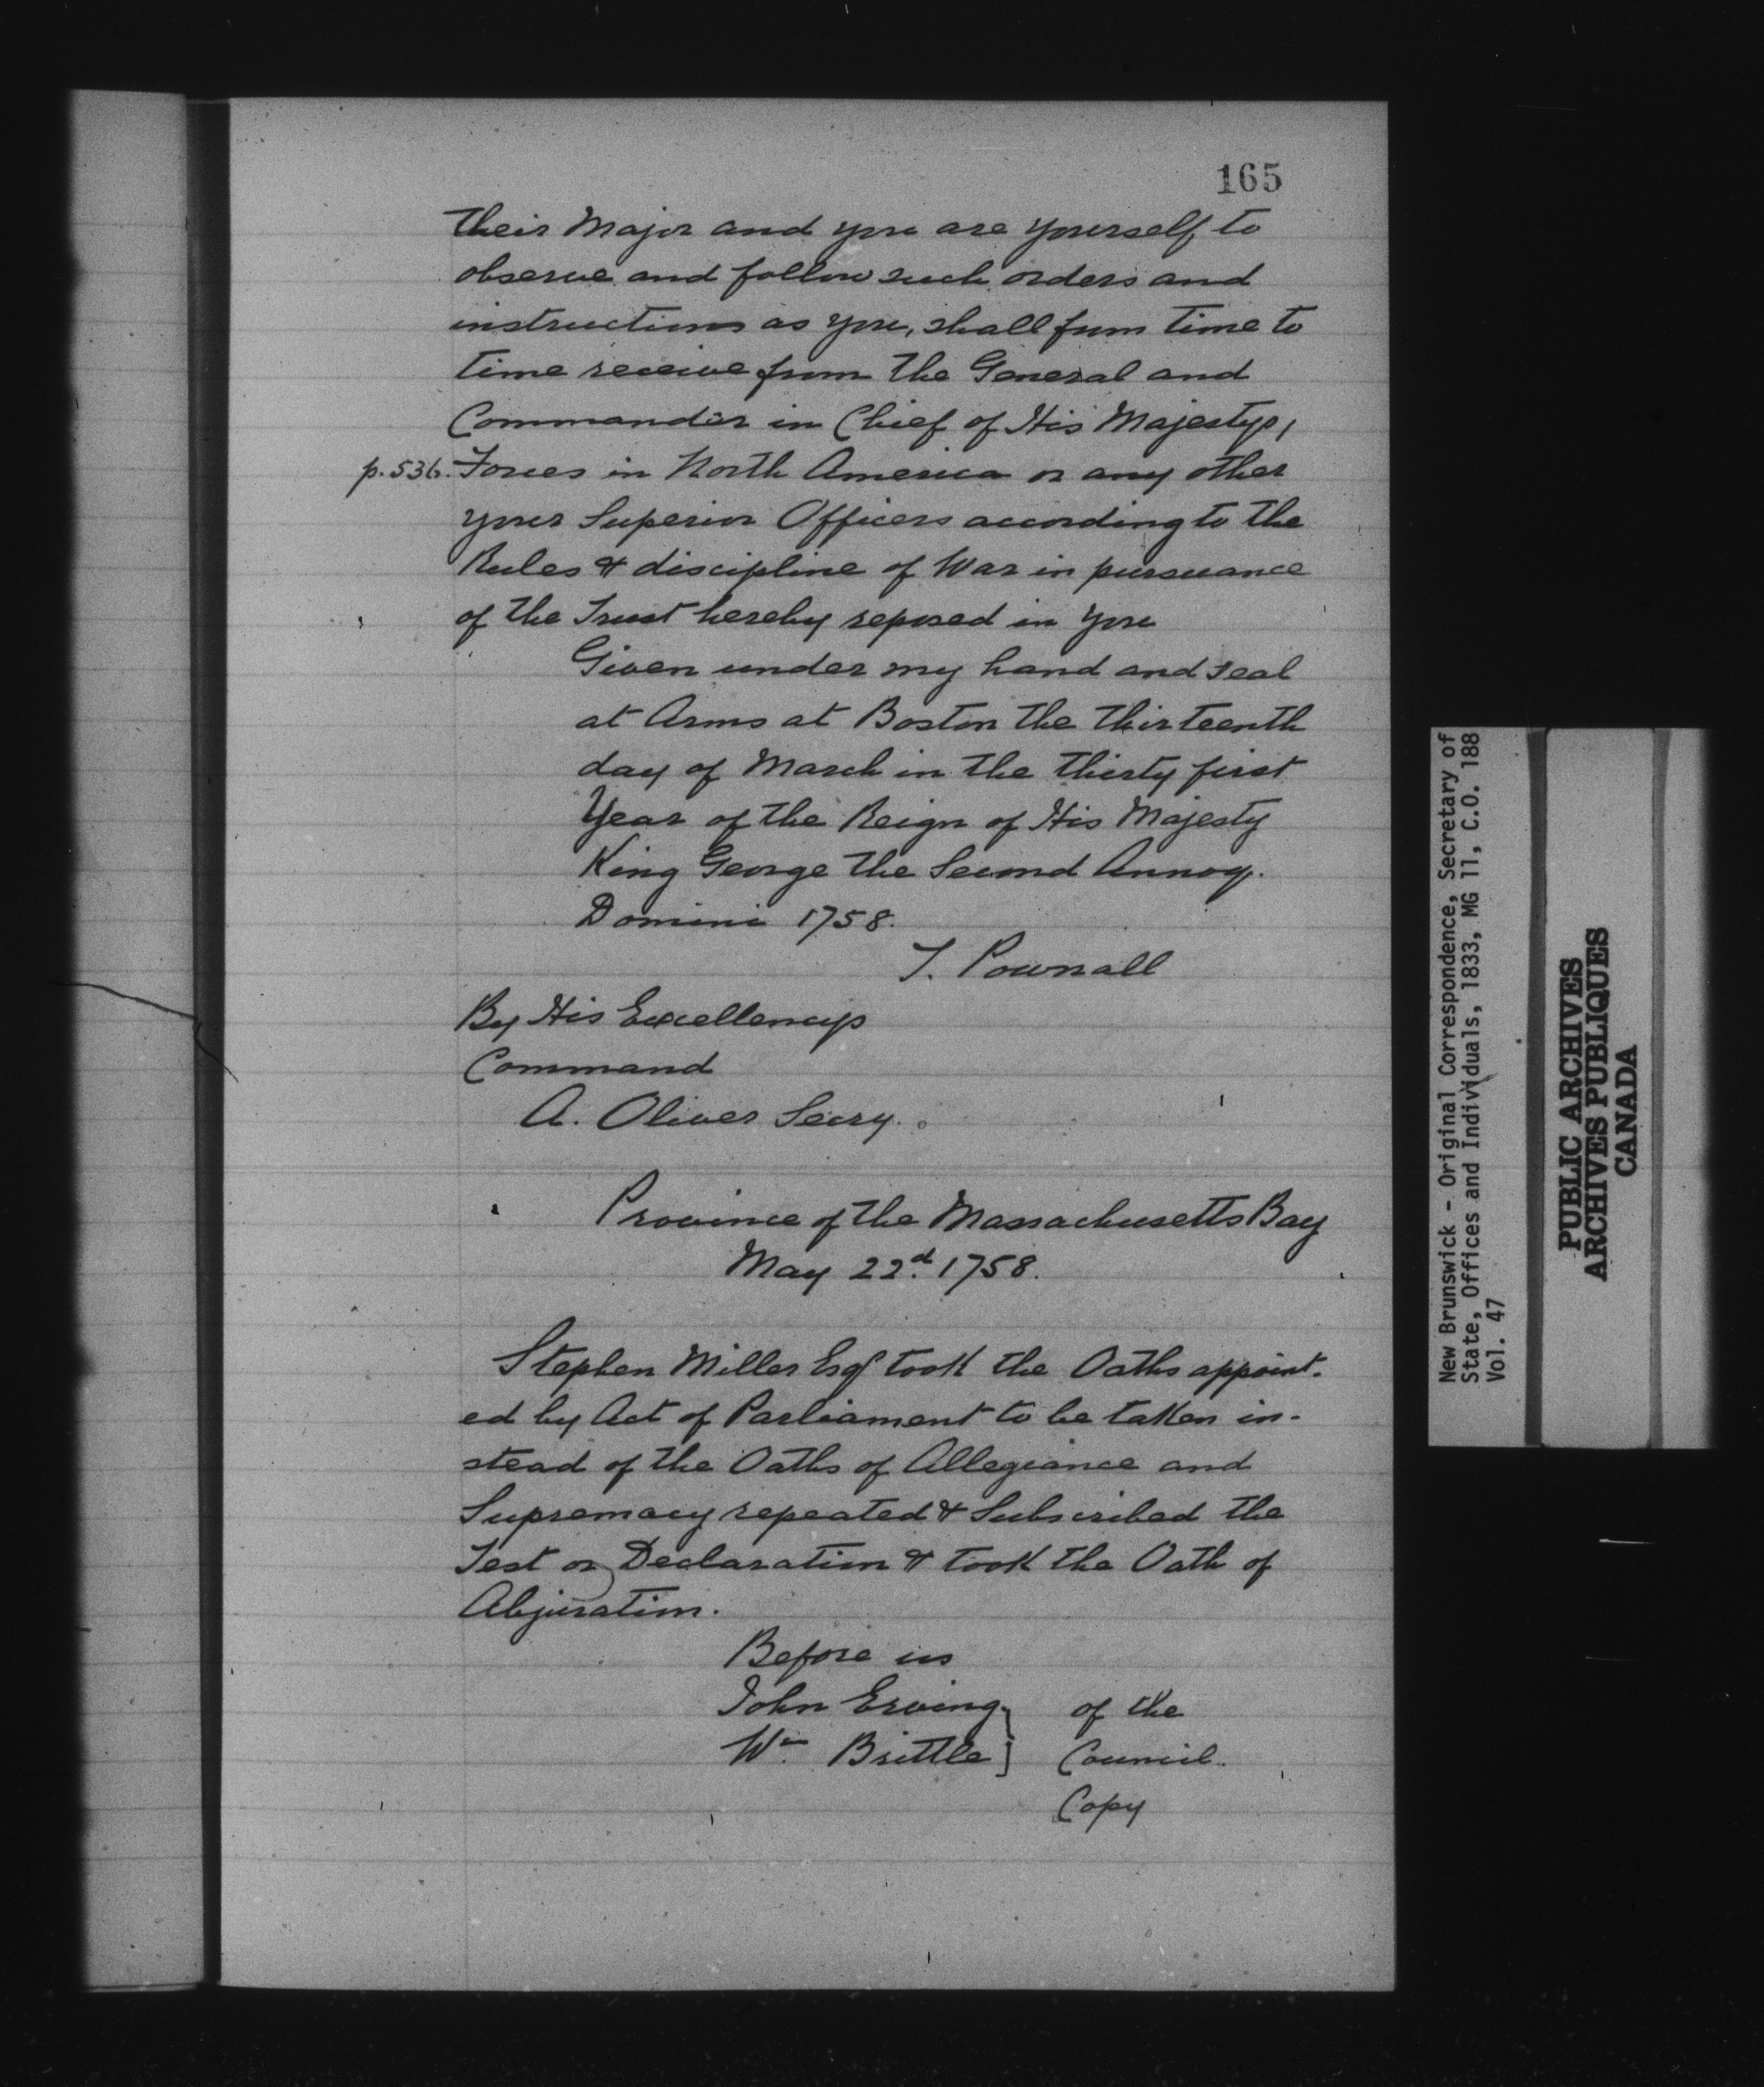 165
their Major and you are yourself to
observe and follow such orders and
instructions as you, shall from time to
time receive from the General and
Commander in Chief of His Majestys,
p. 536. Forces in North America or any other
your Superior Officers according to the
Rules & discipline of War in pursuance
of the Trust hereby reposed in you
Given under my hand and seal
at Arms at Boston the thirteenth
day of March in the thirty first
Year of the Reign of His Majesty
King George the Second Annoq.
Domini 1758.
T. Pownall
By His Excellencys
Command
A. Oliver Secry.
Province of the Massachusetts Bay
May 22d. 1758.
Stephen Miller Esqr took the Oaths appoint-
ed by Act of Parliament to be taken in-
stead of the Oaths of Allegiance and
Supremacy repeated & Subscribed the
Test or Declaration & took the Oath of
Abjuration.
Before us
John Erving } of the
Wm. Brittle } Council.
Copy
New Brunswick - Original Correspondence, Secretary of
State, Offices and Individuals, 1833, MG 11, C.O. 188
Vol. 47
PUBLIC ARCHIVES
ARCHIVES PUBLIQUES
CANADA